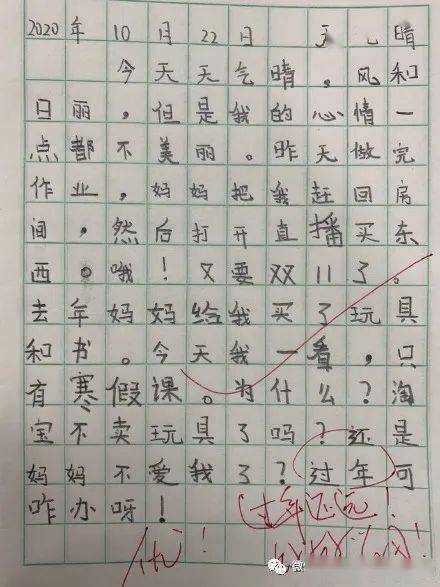 2020年10月22日 晴
今天天气晴，风和
日丽，但是我的心情一
点都不美丽。昨天做完
作业，妈妈把我赶回房
间，然后打开直播买东
西。哦！又要双11了。
去年妈妈给我买了玩具
和书。今天我一看，只
有寒假课。为什么？淘
宝不卖玩具了吗？还是
妈妈不爱我了？过年可
咋办呀！
过年还远！
优！